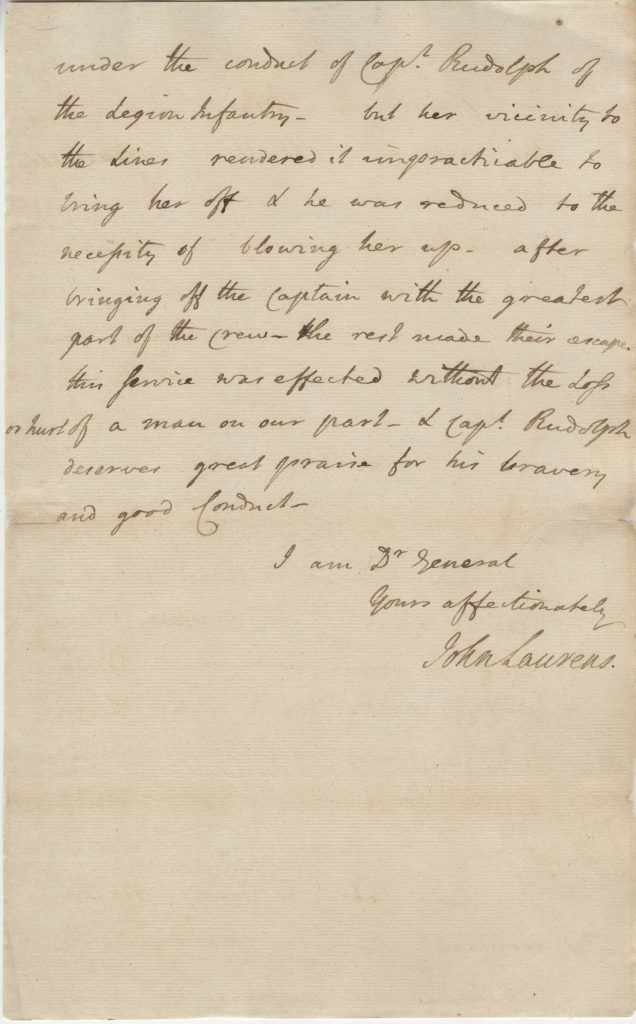 under the conduct of Capt. Rudolph of
the Legion Infantry- but her vicinity to
the Lines rendered it impracticable to
bring her off & he was reduced to the
necessity of blowing her up- after
bringing off the Captain with the greatest
part of the crew- the rest made their escape.
this Service was effected without the Loss
or hurt of a man on our part- & Capt. Rudolph
deserves great praise for his bravery
and good Conduct-
I am Dr General
Yours affectionately
John Laurens.